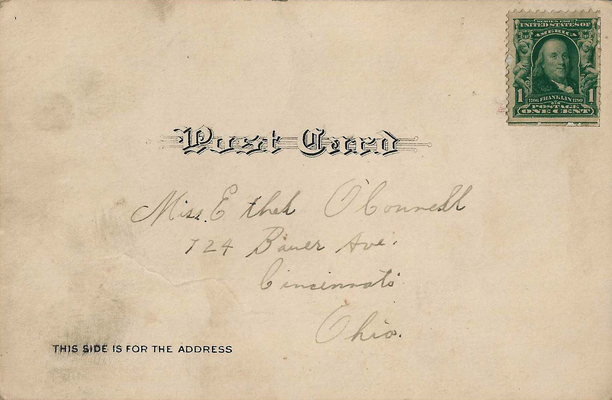 SERIES 1902
UNITED STATES OF
AMERICA
1706 FRANKLIN 1790
1 POSTAGE 1
ONE CENT
Post Card
Miss. Ethel O'Connell
724 Bauer Ave.
Cincinnati
Ohio.
THIS SIDE IS FOR THE ADDRESS